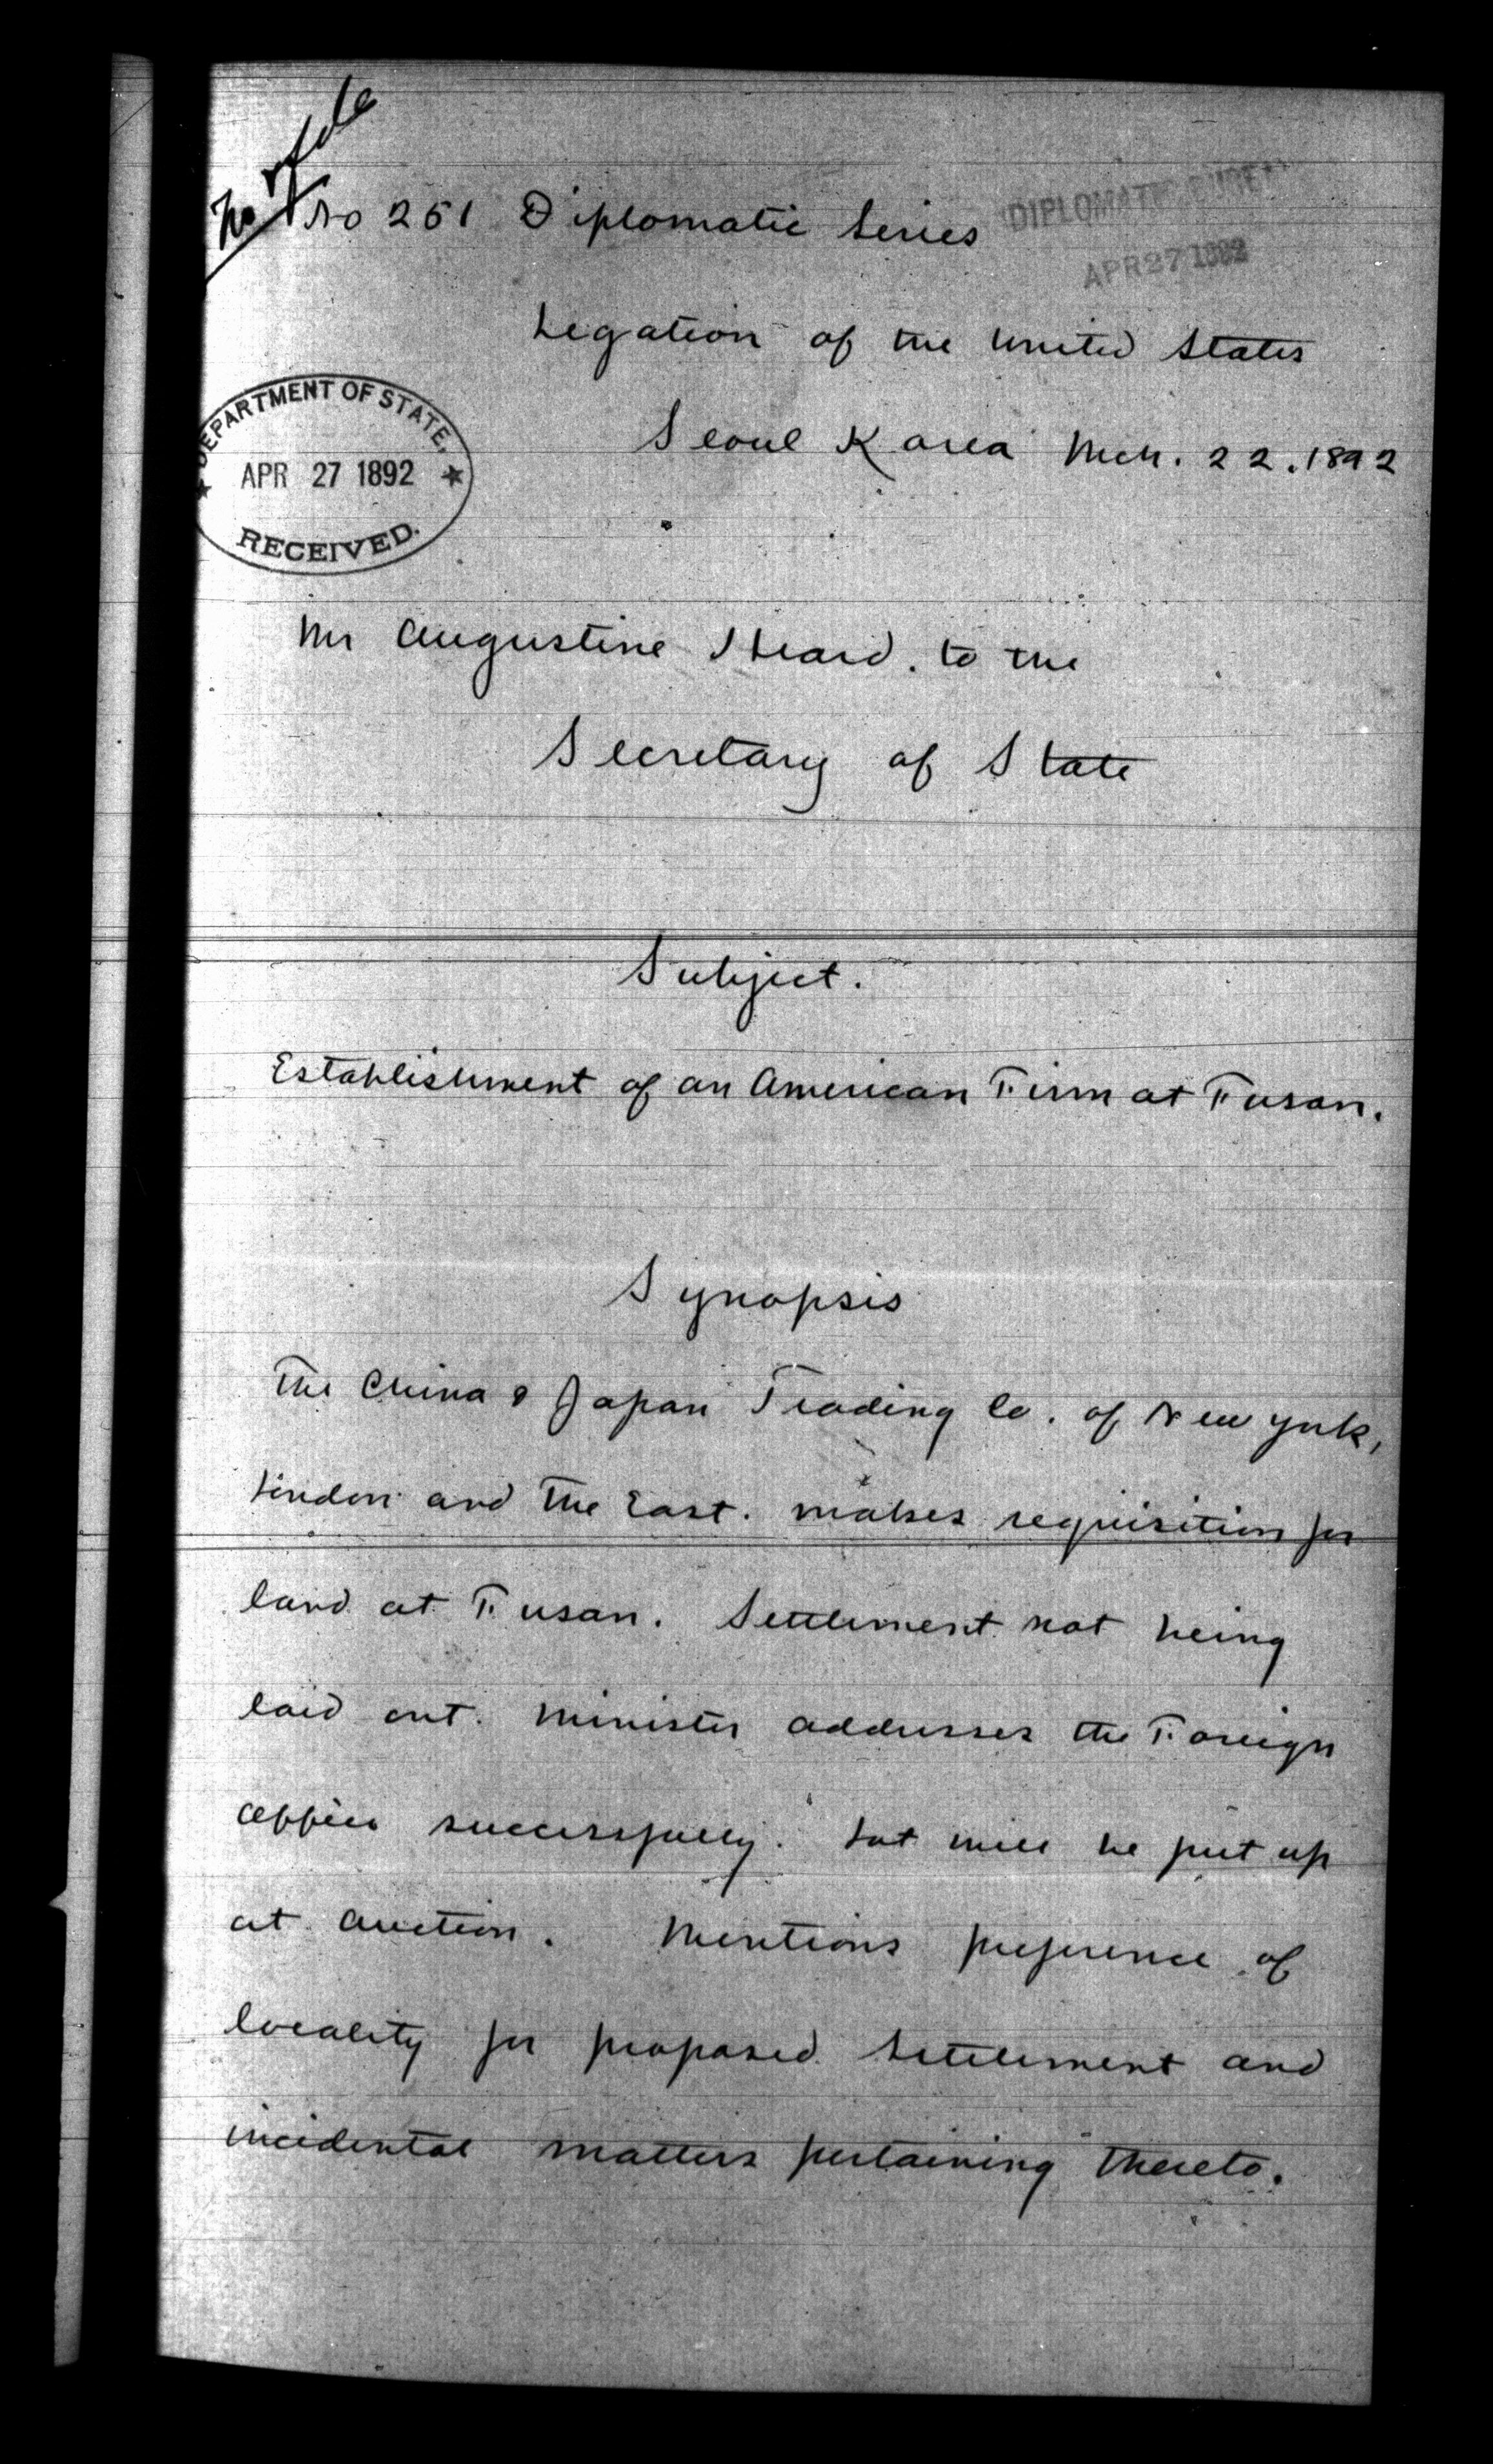 No 251 Diplomatic Series
DIPLOMATIC BUREAU
APR 27 1892
Legation of the United States
Seoul Korea Mch. 22. 1892
DEPARTMENT OF STATE,
APR 27 1892
RECEIVED.
Mr Augustine Heard. to the
Secretary of State
Subject.
Establishment of an American Firm at Fusan.
Synopsis
The China & Japan Trading Co. of New York,
London and the East. makes requisition for
land at Fusan. Settlement not being
laid out. Minister addresses the Foreign
Office successfully. Lot will be put up
at auction. Mentions preference of
locality for proposed settlement and
incidental matters pertaining thereto.